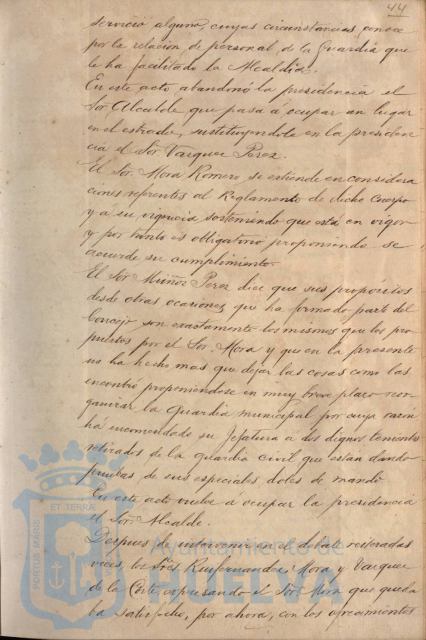 44
servicio alguno, cuyas circunstancias conoce
por la relación de personal de la Guardia que
le ha facilitado la Alcaldia.
En este acto abandonó la presidencia el
Sor Alcalde que pasa á ocupar un lugar
en el estrado, sustituyendole en la presiden
cia el Sor Vazquez Perez.
El Sor Mora Romero se estiende en considera
ciones referentes al Reglamento de dicho Cuerpo
y á su vigencia sosteniendo que está en vigor
y por tanto es obligatorio proponiendo se
acuerde su cumplimiento.
El Sor Muñoz Perez dice que sus propósitos
desde otras ocasiones que ha formado parte del
Concejo son exactamente los mismos que los pro
puestos por el Sor Mora y que en la presente
no ha hecho mas que dejar las cosas como las
encontró proponiendose en muy breve plazo reor
ganizar la Guardia municipal por cuya razón
há encomendado su Jefatura á dos dignos tenientes
retirados de la guardia civil que están dando
pruebas de sus especiales dotes de mando
En este acto vuelve á ocupar la presidencia
el Sor Alcalde.
Despues de intervenir en el debate reiteradas
veces, los Sres Mora y Vazquez
de la Corte, expresando el Sor Mora que queda
ha satisfecho, por ahora, con los ofrecimientos
PORTUS MARIS ET TERRAE
Ayuntamiento de
HUELVA